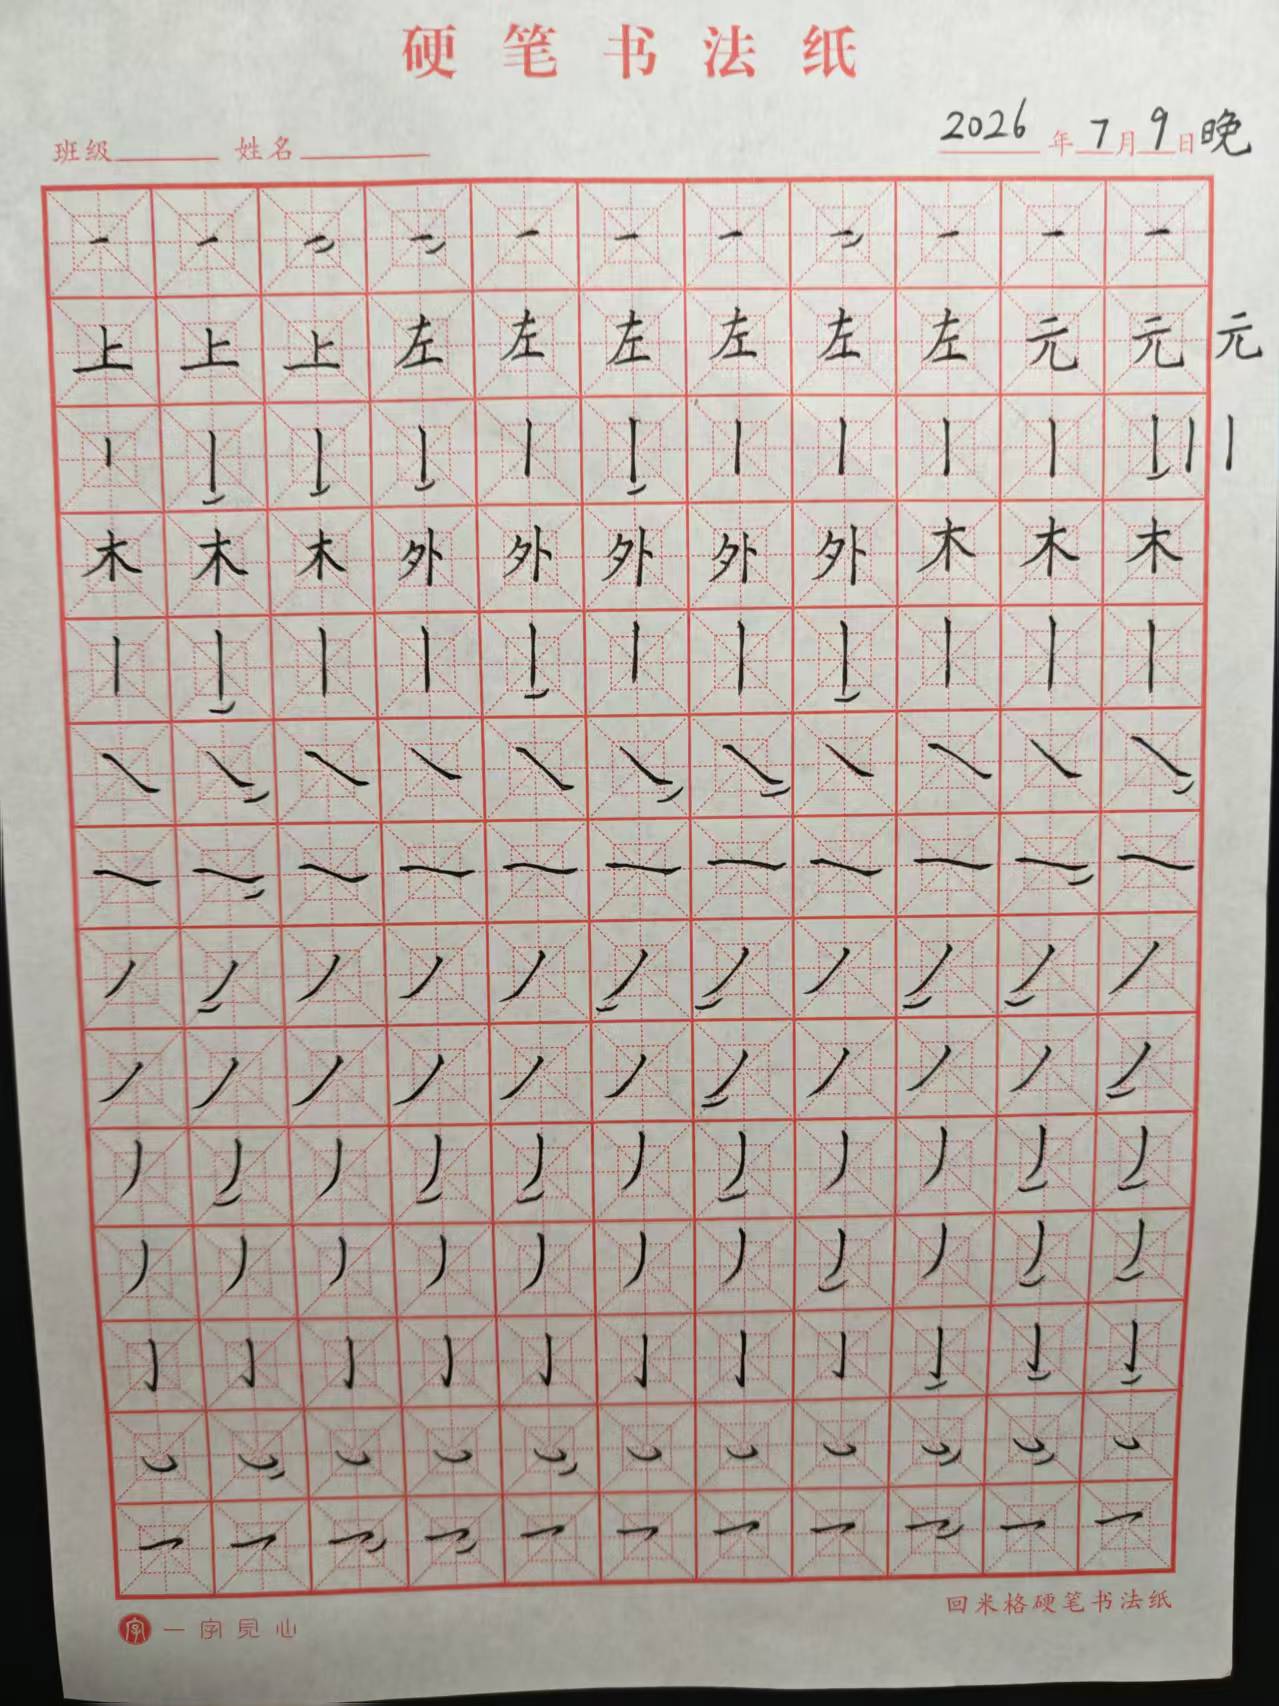 硬笔书法纸
班级 姓名 2026年7月9日晚
一一一一一一一一一一一
上上上左左左左左左元元元
丨丨丨丨丨丨丨丨丨丨丨丨丨
木木木外外外外外木木木
丨丨丨丨丨丨丨丨丨丨丨
㇏㇏㇏㇏㇏㇏㇏㇏㇏㇏㇏
㇏㇏㇏㇏㇏㇏㇏㇏㇏㇏㇏
丿丿丿丿丿丿丿丿丿丿丿
丿丿丿丿丿丿丿丿丿丿丿
丿丿丿丿丿丿丿丿丿丿丿
丿丿丿丿丿丿丿丿丿丿丿
亅亅亅亅亅亅亅亅亅亅亅
㇃㇃㇃㇃㇃㇃㇃㇃㇃㇃㇃
乛乛乛乛乛乛乛乛乛乛乛
回米格硬笔书法纸
字 一字见心